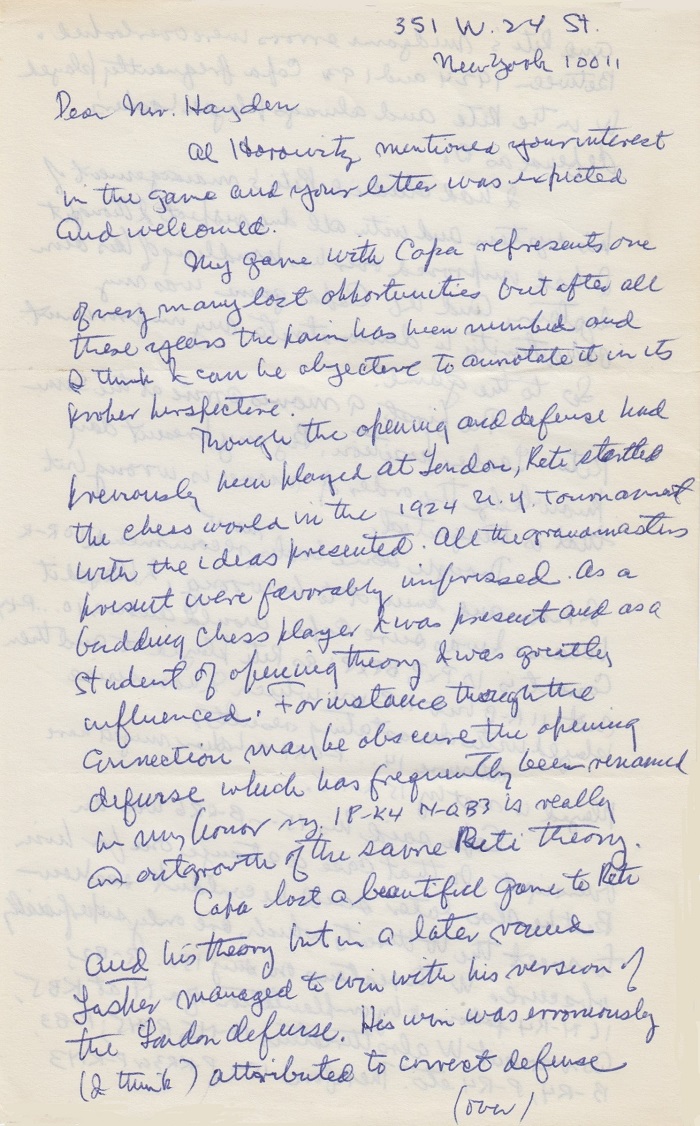 351 W. 24 St.
New York 10011
Dear Mr. Hayden
Al Horowitz mentioned your interest
in the game and your letter was expected
and welcomed.
My game with Capa represents one
of very many lost opportunities but after all
these years the pain has been numbed and
I think I can be objective to annotate it in its
proper perspective.
Though the opening and defense had
previously been played at London, Reti startled
the chess world in the 1924 N.Y. Tournament
with the ideas presented. All the grandmasters
present were favorably impressed. As a
budding chess player I was present and as a
student of opening theory I was greatly
influenced. For instance though the
connection may be obscure the opening
defense which has frequently been renamed
in my honor 1P-K4 N-QB3 is really
an outgrowth of the same Reti theory.
Capa lost a beautiful game to Reti
and his theory but in a later round
Lasker managed to win with his version of
the London defense. His win was erroneously
(I think) attributed to correct defense
(over)